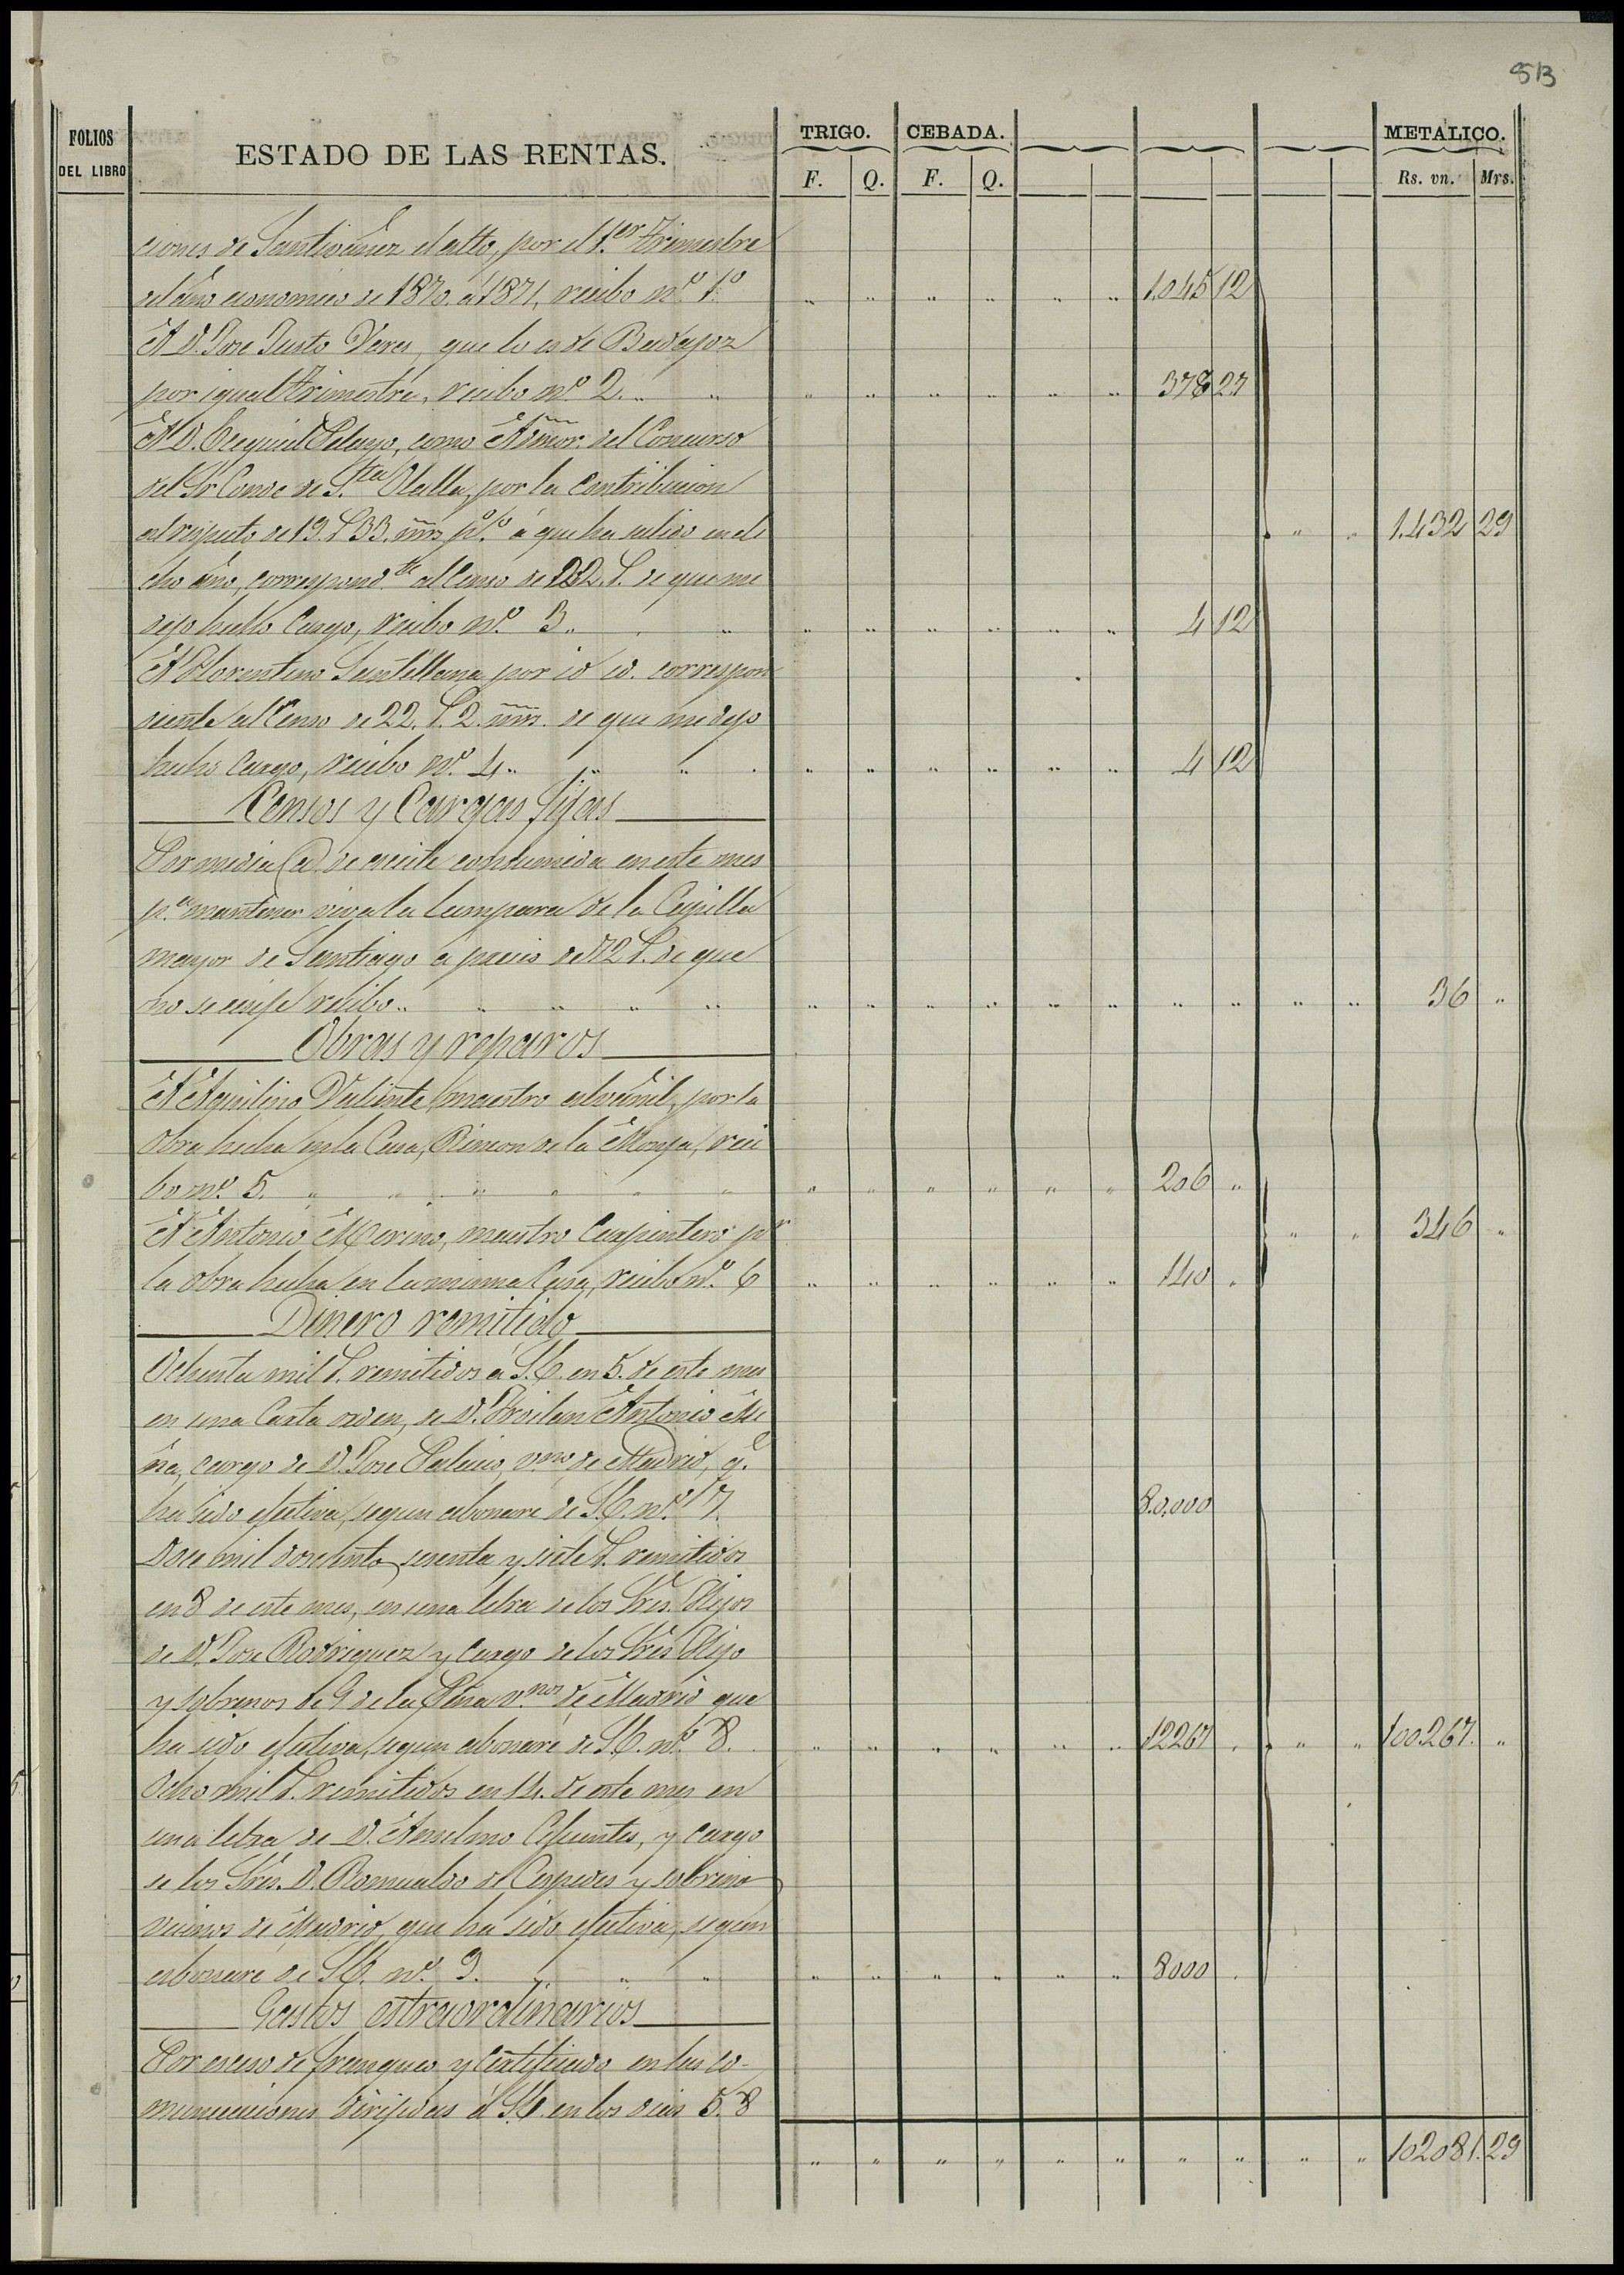 513
FOLIOS DEL LIBRO
ESTADO DE LAS RENTAS.
TRIGO. CEBADA. METALICO.
F. Q. F. Q. Rs. vn. Mrs.
ciones de Santivañez el alto, por el 1.er trimestre
del año economico de 1870 á 1871, recibo nº 1º 1.045 12
A D. Jose Justo Veres, que lo es de Badajoz
por igual trimestre, recibo nº 2. 378 27
A D. Ecequiel Pelayo, como Admor. del Concurso
del Sr Conde de S.ta Olalla, por la contribucion
al respecto de 19 33 mrs p% á que ha salido en di 1.432 29
cho año, correspond.te al Censo de 22 de que me
dejo hecho Cargo, recibo nº 3. 4 12
A Florentino Santillana por id id. correspon
diente al Censo de 22. 2. mrs. de que me dejo
hecho Cargo, recibo nº 4. 4 12
Censos y Cargas fijas
Por media @ de aceite consumida en este mes
p.a mantener viva la lampara de la Capilla
mayor de Santiago á precio de 72 de que
no se exije recibo 36
Obras y reparos
A Aquilino Valiente maestro albañil, por la
obra hecha en la Casa, Rincon de la Monja, reci
bo nº 5. 206
A Antonio Merino, maestro Carpintero pr 346
la obra hecha en la misma Casa, recibo nº 6 140
Dinero remitido
Ochenta mil remitidos á S.E. en 5. de este mes
en una Carta orden, de D. Froilan Antonio Me
na, cargo de D. Jose Palacio, v.no de Madrid, q.e
ha sido efectiva, segun abonaré de S.E. nº 7. 80,000
Doce mil doscientos sesenta y siete remitidos
en 8 de este mes, en una letra de los Sres. Hijos
de D. Jose Rodriguez y cargo de los Sres Hijo
y sobrinos de G de la Peña v.nos de Madrid que
ha sido efectiva, segun abonaré de S.E. nº 8. 12267 100.267.
Ocho mil remitidos en 14. de este mes en
una letra de D. Anselmo Cifuentes, y cargo
de los Sres. D. Romualdo de Cespedes y sobrino
vecinos de Madrid, que ha sido efectiva, segun
abonaré de S.E. nº 9. 8000
Gastos estraordinarios
Por exceso de franqueo y Certificado en las co-
municaciones dirijidas á S.E. en los dias 5. 8
102081.29